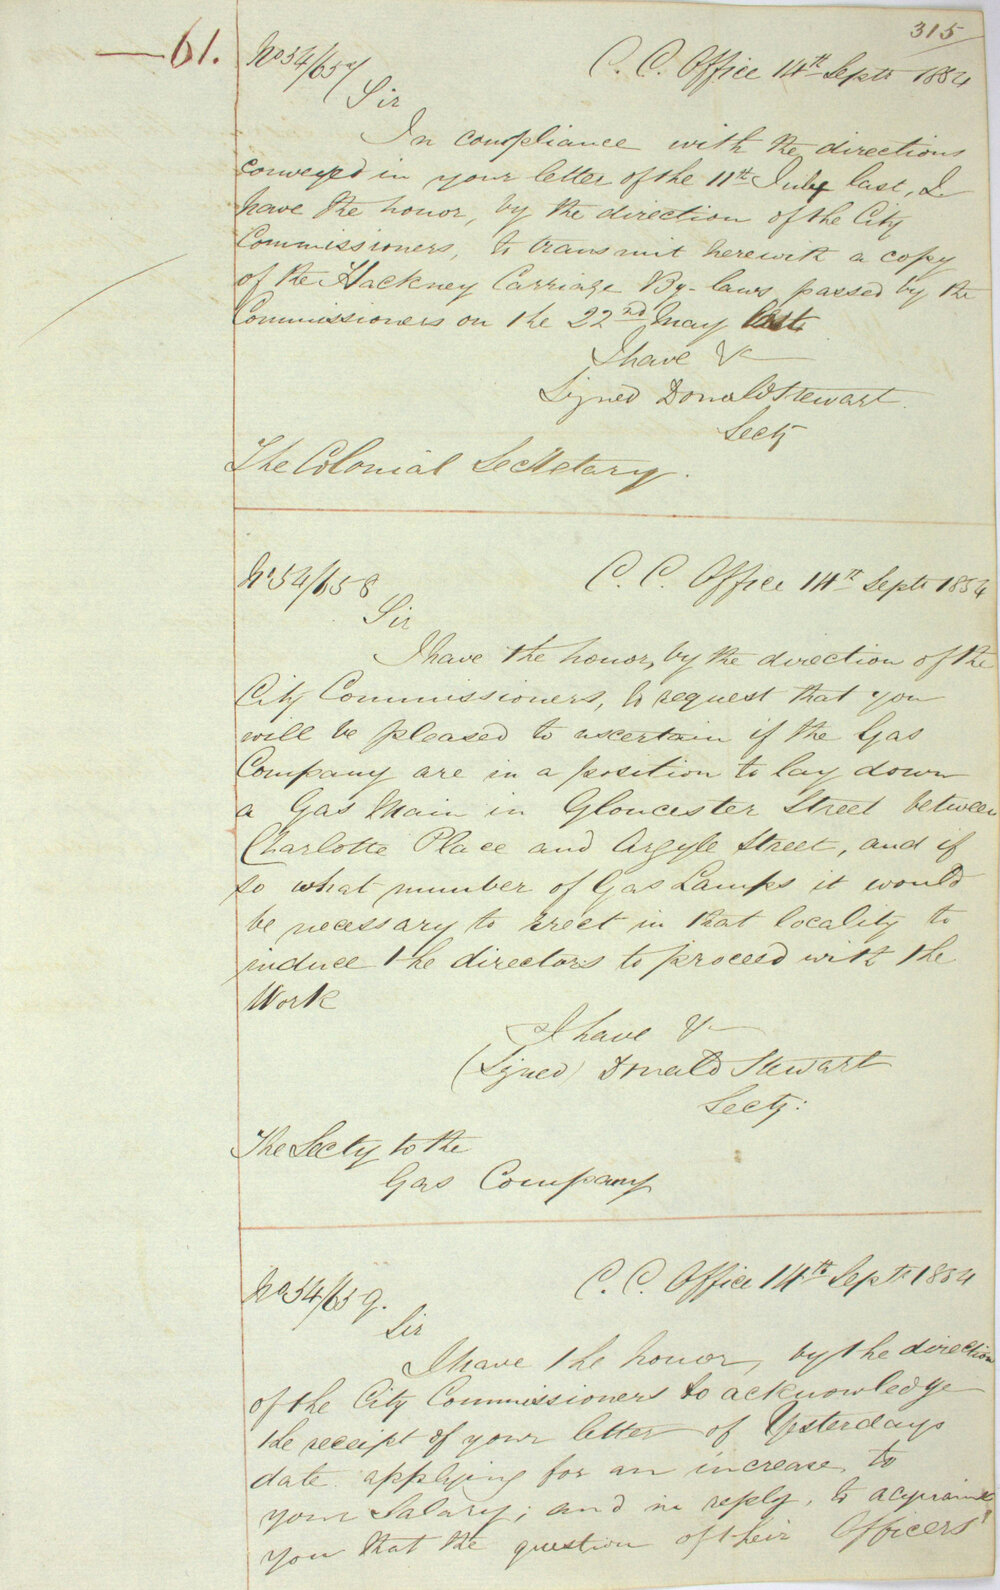 315
—61.
No 54/657
C. C. Office 14th Septr 1854
Sir
In compliance with the directions
conveyed in your letter of the 11th July last, I
have the honor, by the direction of the City
Commissioners, to transmit herewith a copy
of the Hackney Carriage By-laws passed by the
Commissioners on the 22nd May last
I have &c
Signed Donald Stewart
Secty
The Colonial Secretary.
No 54/658
C. C. Office 14th Septr 1854
Sir
I have the honor, by the direction of the
City Commissioners, to request that you
will be pleased to ascertain if the Gas
Company are in a position to lay down
a Gas Main in Gloucester Street between
Charlotte Place and Argyle Street, and if
so what number of Gas Lamps it would
be necessary to erect in that locality to
induce the directors to proceed with the
Work
I have &c
(Signed) Donald Stewart
Secty:
The Secty to the
Gas Company
No 54/659.
C. C. Office 14th Septr 1854
Sir
I have the honor, by the direction
of the City Commissioners to acknowledge
the receipt of your letter of Yesterdays
date applying for an increase to
your Salary; and in reply, to acquaint
you that the question of their Officers'